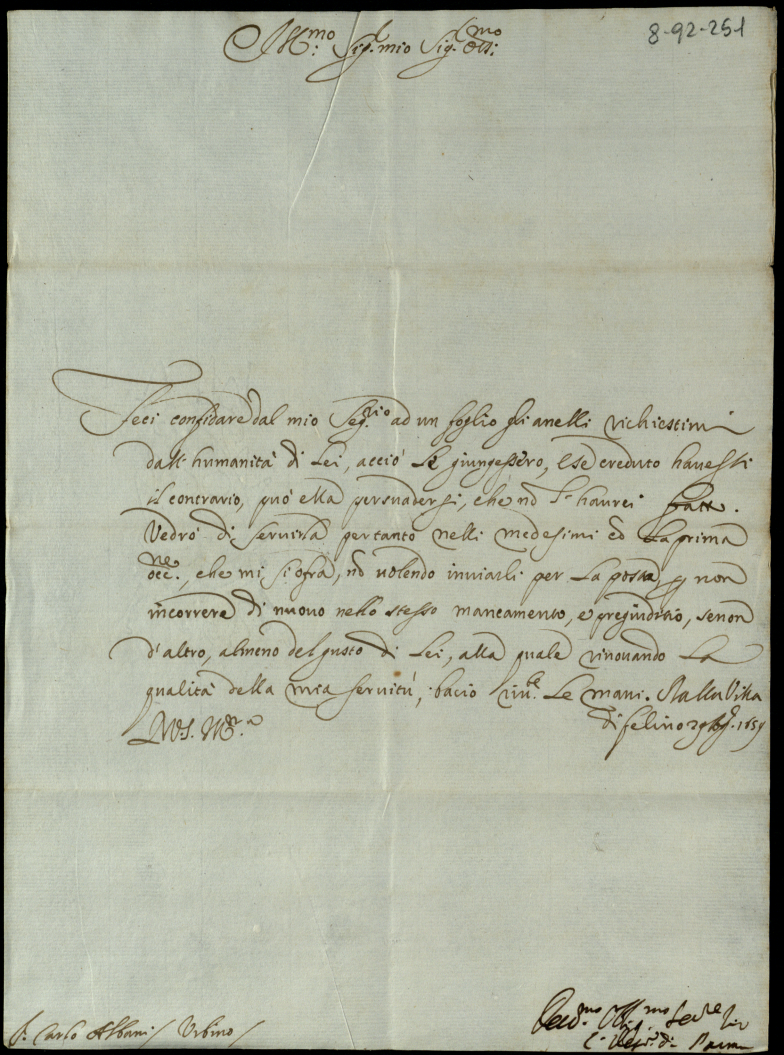 8-92-251
Ill:mo Sig.r mio Sig.r Oss:mo
Feci confidare dal mio Seg.rio ad un foglio gli anelli richiestimi
dall'humanità di Lei, acciò Le giungessero, e se creduto havessi
il contrario, può ella persuadersi, che nõ l'haurei fatto.
Vedrò di servirla pertanto nelli medesimi cõ la prima
occ:ne, che mi si ofra, nõ volendo inviarli per la posta p non
incorrere di nuovo nello stesso mancamento, e pregiuditio, se non
d'altro, almeno del gusto di Lei, alla quale rinovando La
qualità della mia servitù, bacio riu.te Le mani. Dalla Villa
di felino 29 1659
V.S. Ill.ma
Dev.mo Obl.mo Ser.re
il di Parma
S.r Carlo Albani / Urbino /